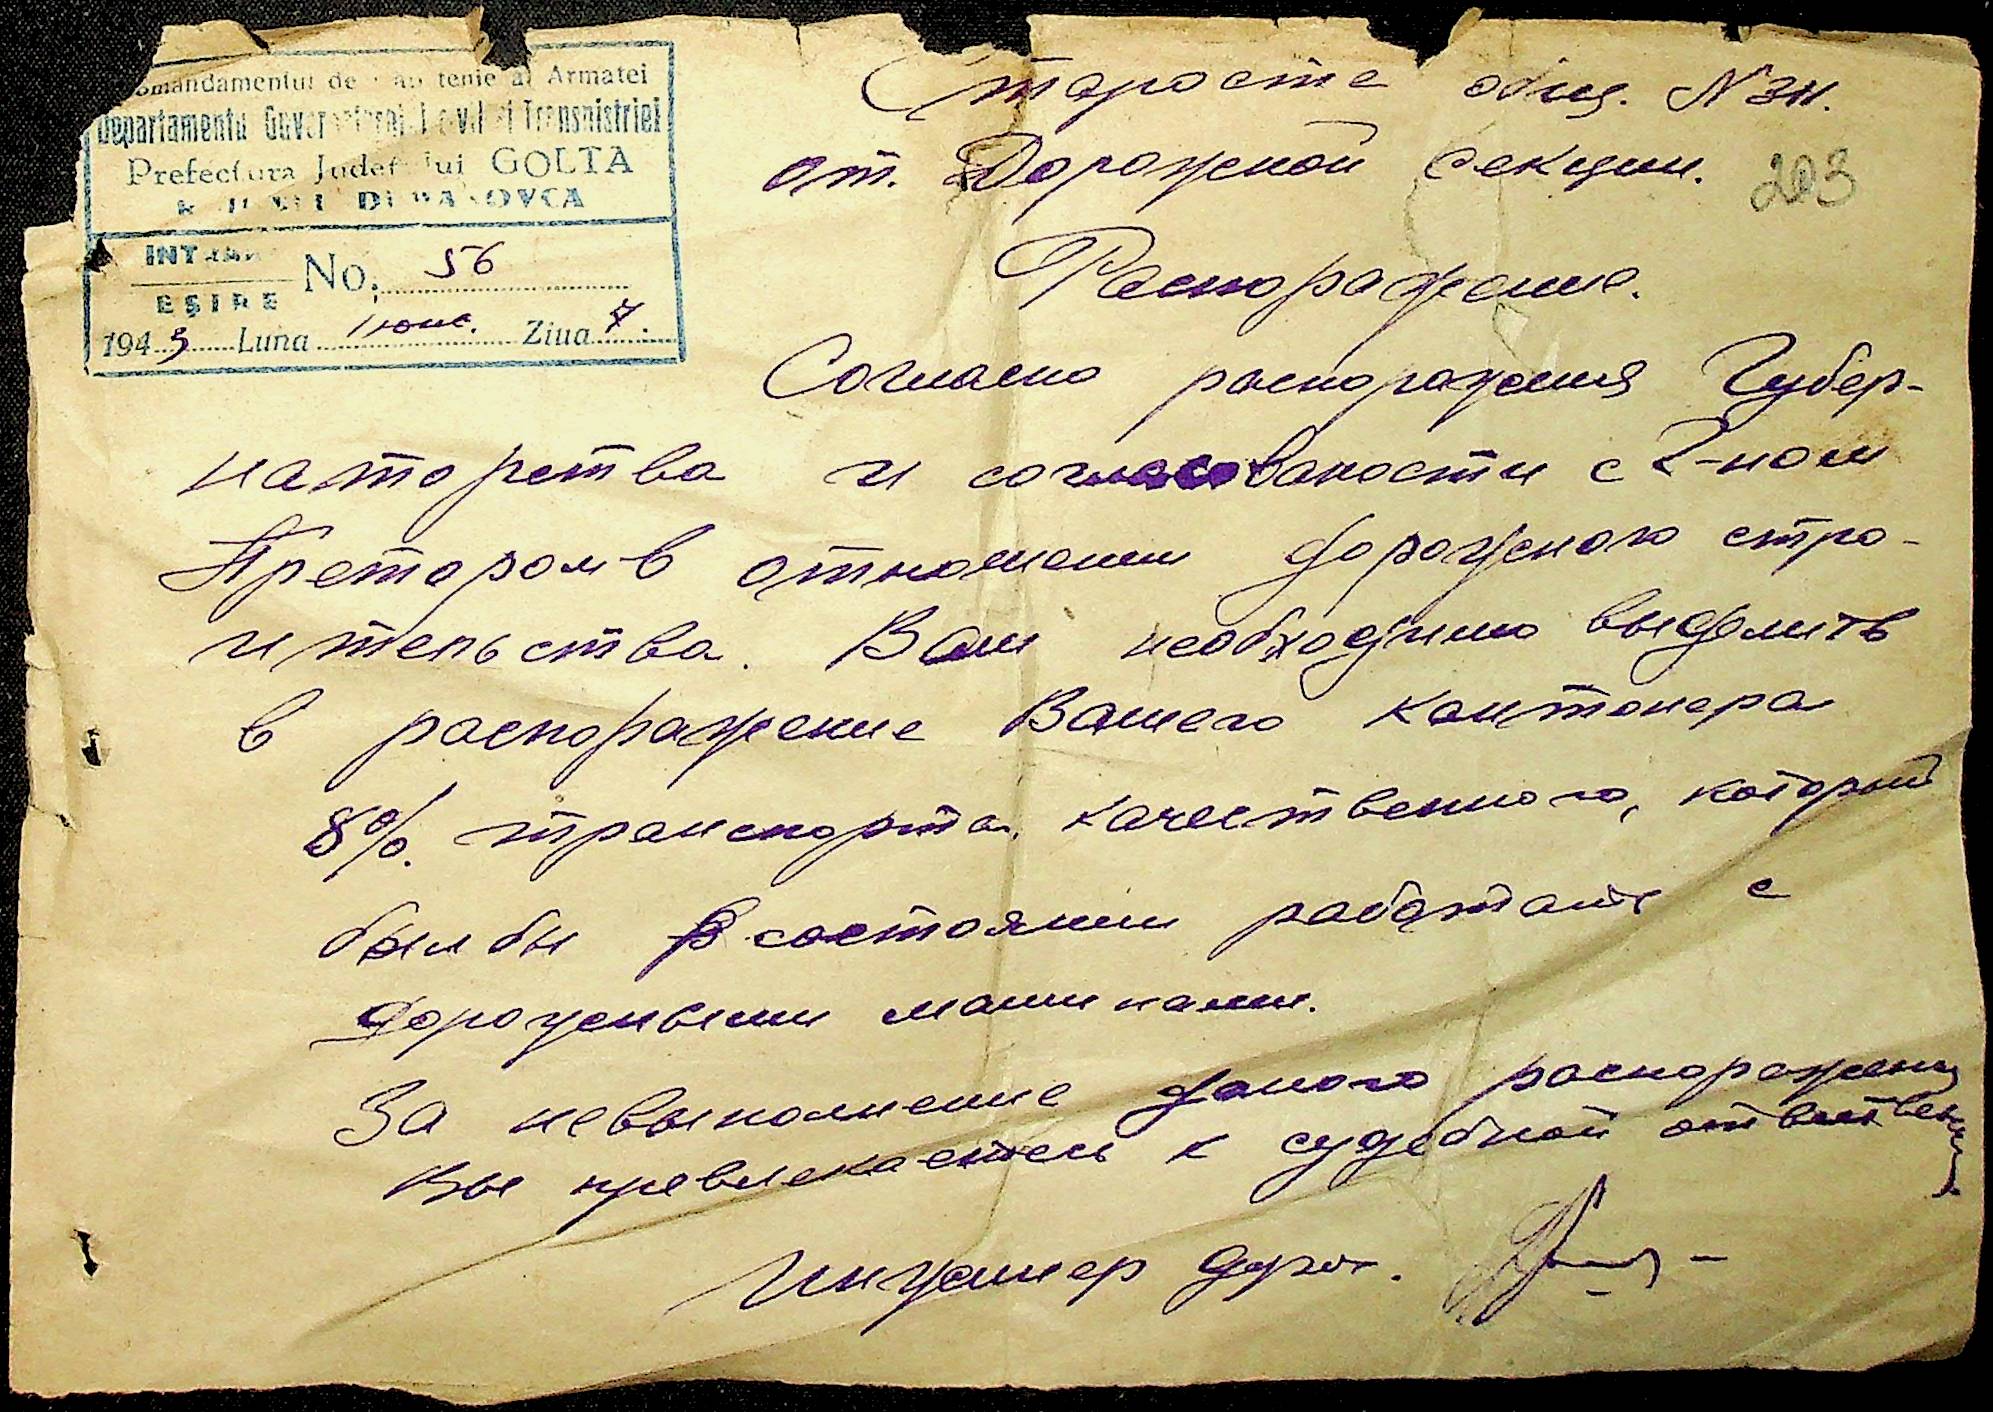 Comandamentul de Căp tenie al Armatei
Departamentu Guver Transnistriei
Prefectura Judetului GOLTA
INTRARE
EŞIRE
No. 56
1943 Luna июнь. Ziua 7.
Старосте общ. №
от. Дорожной Секции.
203
Распоражение.
Согласно распоражения Губер-
наторства и согласованости с Г-ном
Претором в отношении дорожного стро-
ительства. Вам необходимо выделить
в распоражение Вашего кантонера
8%. транспорта. качественного, который
был бы в состоянии работать с
дорожными машинами.
За невыполнение даного распоражени
Вы превлекаетесь к судебной ответствен
Инженер дорог.